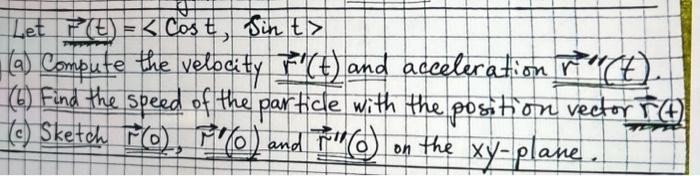 Let r⃗(t) = < Cos t, Sin t >
(a) Compute the velocity r⃗'(t) and acceleration r⃗''(t).
(b) Find the speed of the particle with the position vector r⃗(t)
(c) Sketch r⃗(0), r⃗'(0) and r⃗''(0) on the xy-plane.